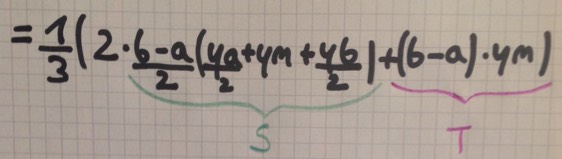 = 1/3 (2 · b-a/2 (ya/2 + ym + yb/2) + (b-a) · ym)
S T